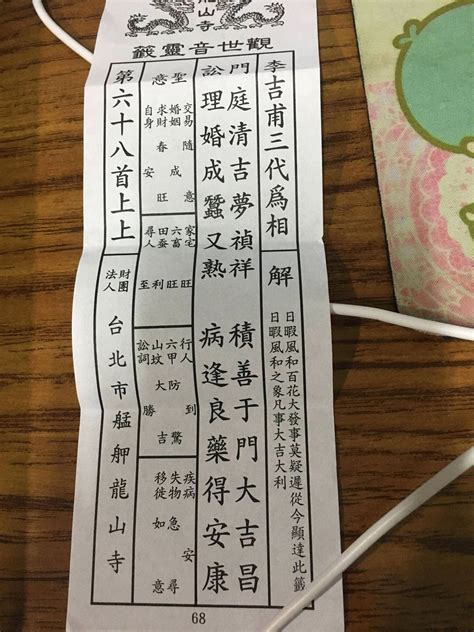 山寺
觀世音靈籤
李吉甫三代爲相
解
日暖風和百花大發事莫疑遲從今顯達此籤
日暖風和之象凡事大吉大利
門庭清吉夢禎祥 積善于門大吉昌
訟理婚成蠶又熟 病逢良藥得安康
聖意
交易隨意
婚姻成
求財春旺
自身安
家宅旺
六畜旺
田蚕利
尋人至
行人到
六甲防驚
山墳大吉
訟詞勝
疾病安
失物急尋
移徙如意
第六十八首上上
財團法人 台北市艋舺龍山寺
68